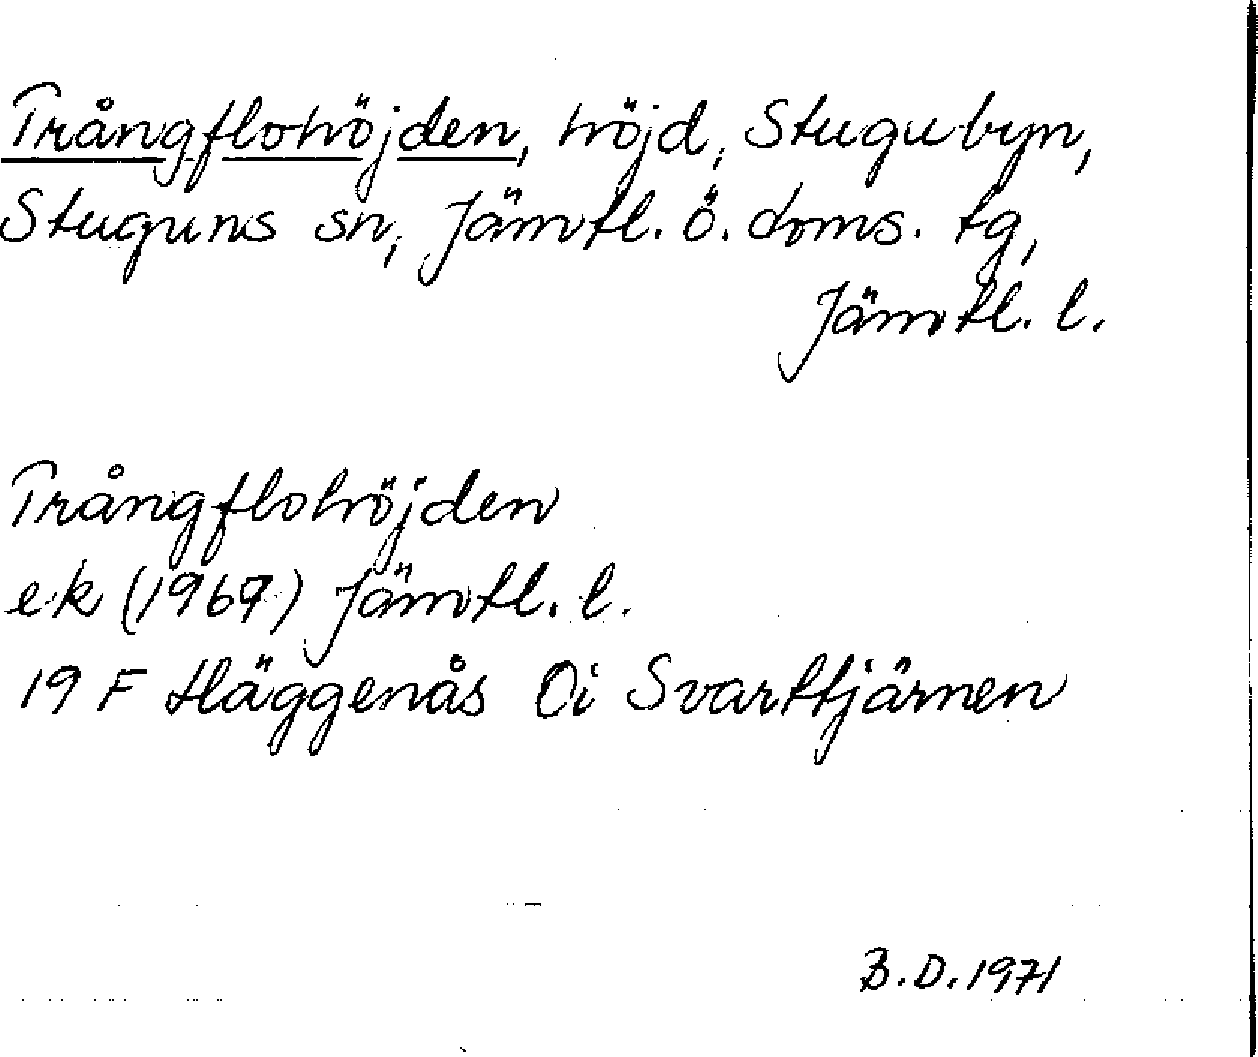 Trångflohöjden, höjd, Stugubyn,
Stuguns sn, Jämtl. ö. doms. tg,
Jämtl. l.
Trångflohöjden
ek (1967) Jämtl. l.
19 F Häggenås Oi Svarttjärnen
B.D. 1971